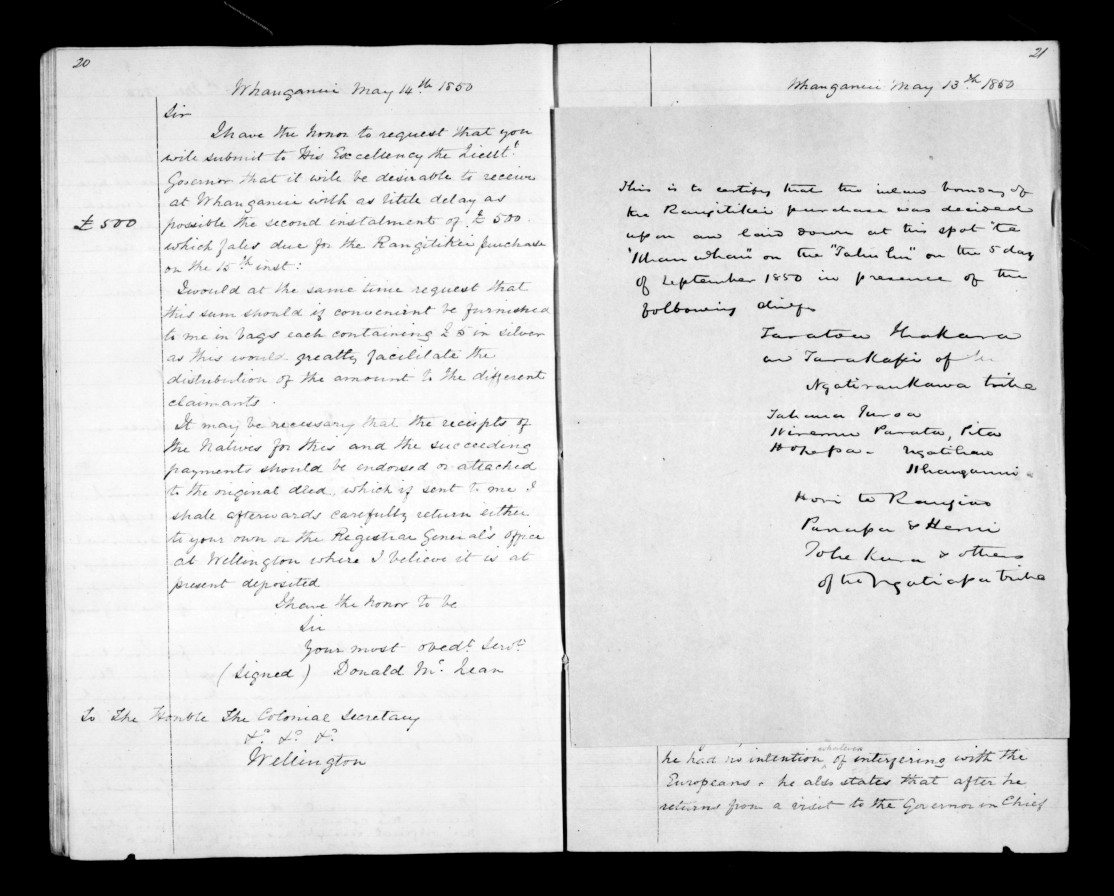 20
Whanganui May 14th 1850
Sir
I have the honor to request that you
will submit to His Excellency the Lieutt.
Governor that it will be desirable to receive
at Whanganui with as little delay as
£500
possible the second instalment of £500.
which falls due for the Rangitikei purchase
on the 15th inst:
I would at the same time request that
this sum should if convenient be furnished
to me in bags each containing 25 in silver
as this would greatly facilitate the
distribution of the amount to the different
claimants.
It may be necessary that the receipts of
the Natives for this and the succeeding
payments should be indorsed or attached
to the original deed, which if sent to me I
shall afterwards carefully return either
to your own or the Registrar General's office
at Wellington where I believe it is at
present deposited
I have the honor to be
Sir
Your most obedt. Servt.
(Signed) Donald McLean
To The Honble The Colonial Secretary
&c. &c. &c.
Wellington
21
Whanganui May 13th 1850
This is to certify that the inland boundary of
the Rangitikei purchase was decided
upon and laid down at this spot "te
on the on the 5 day
of September 1850 in presence of the
following chiefs
Taratoa Thakara
an of
Ngatiraukawa tribe
Tahana Turoa
Wiremu Parata, Pita
Hopepa -
Whanganui -
Hori te Rangiao
Panapa & Hemi
Tohe Kura & others
of the Ngatiapa tribe
he had no intention whatever of interfering with the
Europeans. he also states that after he
returns from a visit to the Governor in Chief